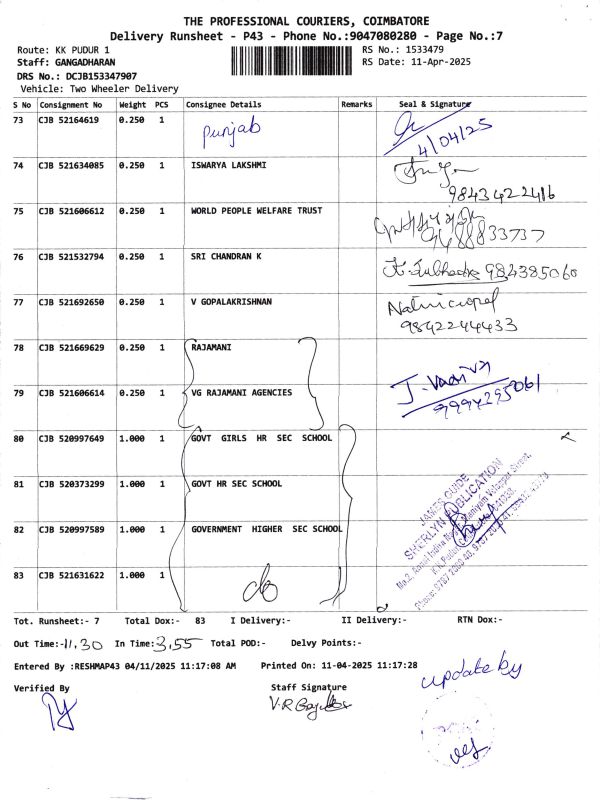 THE PROFESSIONAL COURIERS, COIMBATORE
Delivery Runsheet - P43 - Phone No.:9047080280 - Page No.:7
Route: KK PUDUR 1 RS No.: 1533479
Staff: GANGADHARAN RS Date: 11-Apr-2025
DRS No.: DCJB153347907
Vehicle: Two Wheeler Delivery
S No Consignment No Weight PCS Consignee Details Remarks Seal & Signature
73 CJB 52164619 0.250 1 Punjab
4/04/25
74 CJB 521634085 0.250 1 ISWARYA LAKSHMI
9843422416
75 CJB 521606612 0.250 1 WORLD PEOPLE WELFARE TRUST
9488833737
76 CJB 521532794 0.250 1 SRI CHANDRAN K 984385060
77 CJB 521692650 0.250 1 V GOPALAKRISHNAN
9842244433
78 CJB 521669629 0.250 1 RAJAMANI
79 CJB 521606614 0.250 1 VG RAJAMANI AGENCIES
9994295061
80 CJB 520997649 1.000 1 GOVT GIRLS HR SEC SCHOOL
81 CJB 520373299 1.000 1 GOVT HR SEC SCHOOL
JAMES GUIDE
SHERLYN PUBLICATION
82 CJB 520997589 1.000 1 GOVERNMENT HIGHER SEC SCHOOL
83 CJB 521631622 1.000 1
Tot. Runsheet:- 7 Total Dox:- 83 I Delivery:- II Delivery:- RTN Dox:-
Out Time:-11.30 In Time:-3.55 Total POD:- Delvy Points:-
Entered By :RESHMAP43 04/11/2025 11:17:08 AM Printed On: 11-04-2025 11:17:28
update by
Verified By Staff Signature